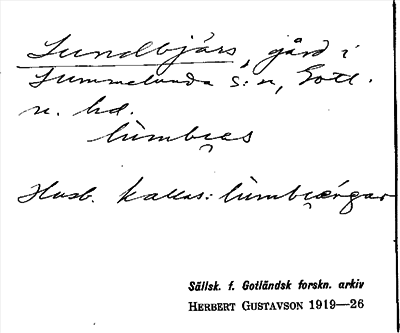 Lundbjärs, gård i
Lummelunda s:n, Gotl.
n. hd.
lùmbi̯es
Husb. kallas: lùmbi̯ǽrgar
Sällsk. f. Gotländsk forskn. arkiv
HERBERT GUSTAVSON 1919—26